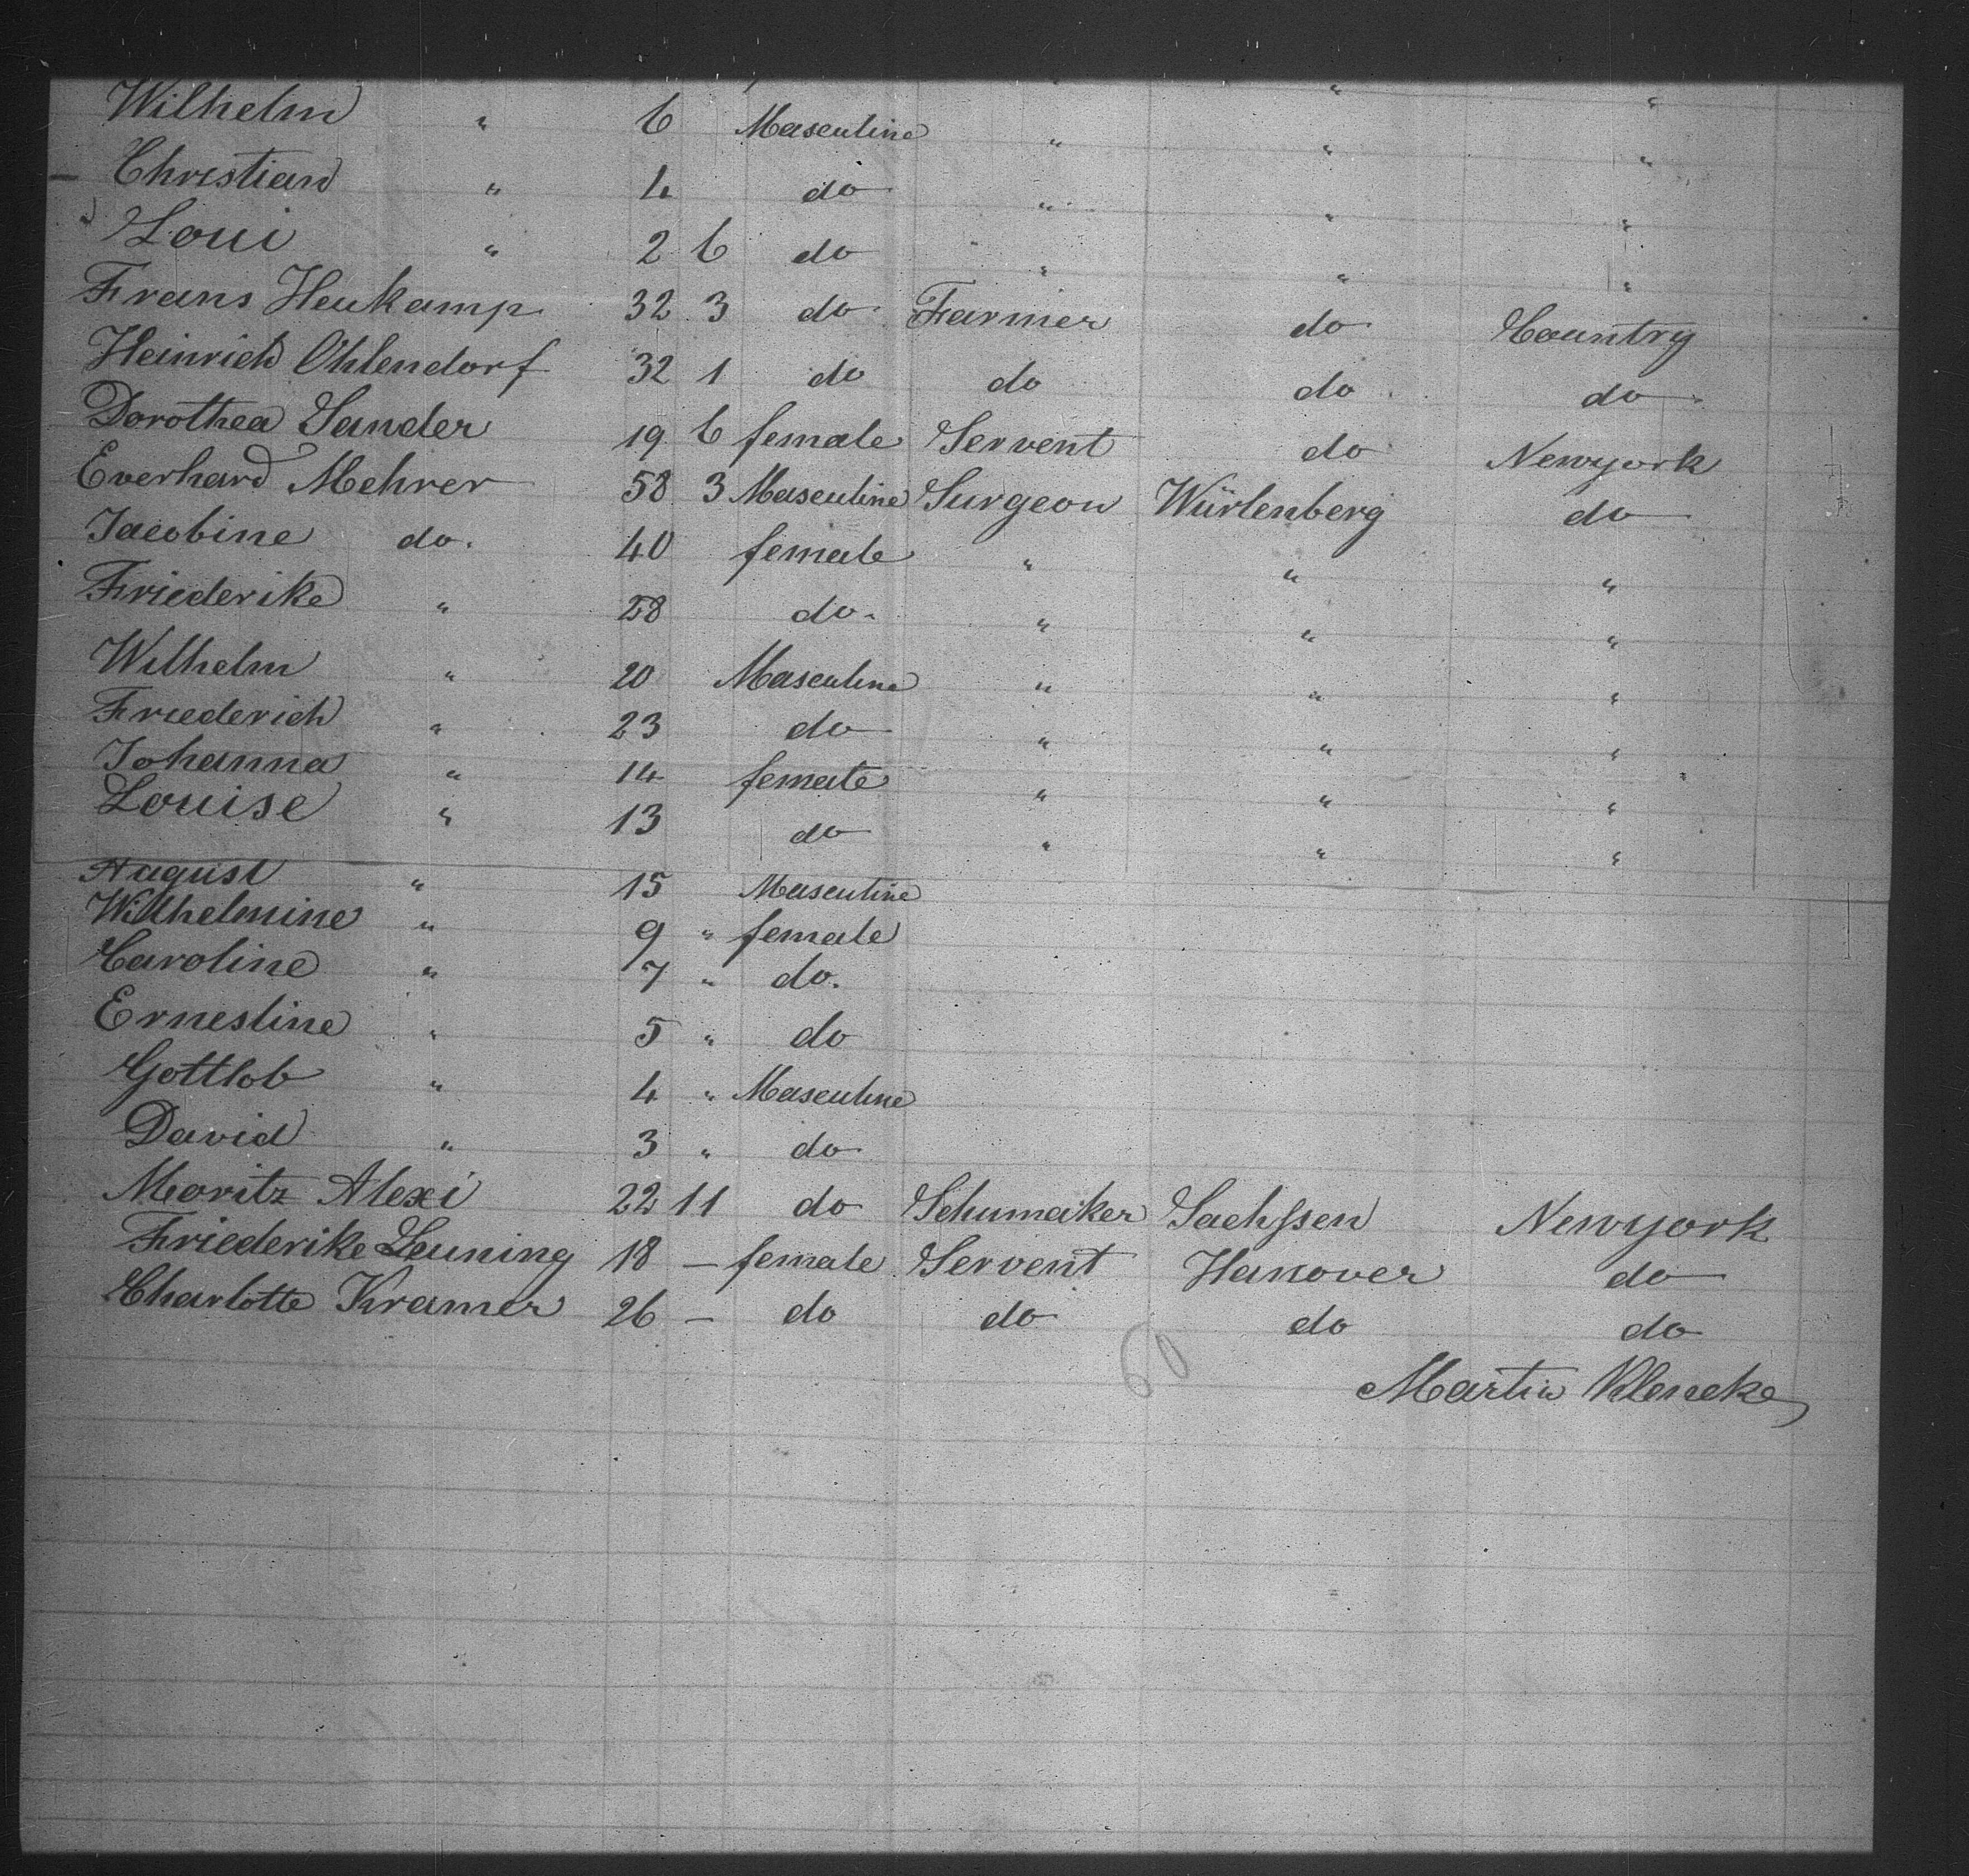 Wilhelm " 6 Masculine " " "
Christian " 4 do " " "
Loui " 2 6 do " " "
Frans Heukamp 32 3 do Farmer do Country
Heinrich Ohlendorf 32 1 do do do do
Dorothea Sander 19 6 female Servent do Newyork
Everhard Mehrer 58 3 Masculine Surgeon Würtenberg do
Jacobine do. 40 female " " "
Friederike " 28 do. " " "
Wilhelm " 20 Masculine " " "
Friederich " 23 do " " "
Johanna " 14 female " " "
Louise " 13 do " " "
August " 15 Masculine
Wilhelmine " 9 " female
Caroline " 7 " do.
Ernestine " 5 " do
Gottlob " 4 " Masculine
David " 3 " do
Moritz Alexi 22 11 do Schumaker Sachssen Newyork
Friederike Leuning 18 — female Servent Hanover do
Charlotte Kramer 26 — do do do do
60
Martin Klencke